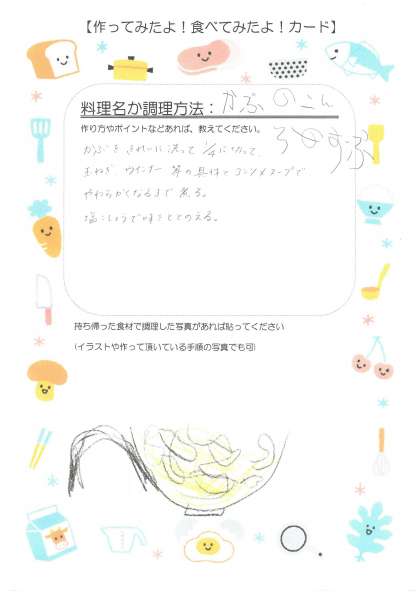 【作ってみたよ！食べてみたよ！カード】
料理名か調理方法：かぶのこん
そめすーぷ
作り方やポイントなどあれば、教えてください。
かぶをきれいに洗って1/4に切って、
玉ねぎ ウインナー 等の具材とコンソメスープで
やわらかくなるまで煮る。
塩こしょうで味をととのえる。
持ち帰った食材で調理した写真があれば貼ってください
(イラストや作って頂いている手順の写真でも可)